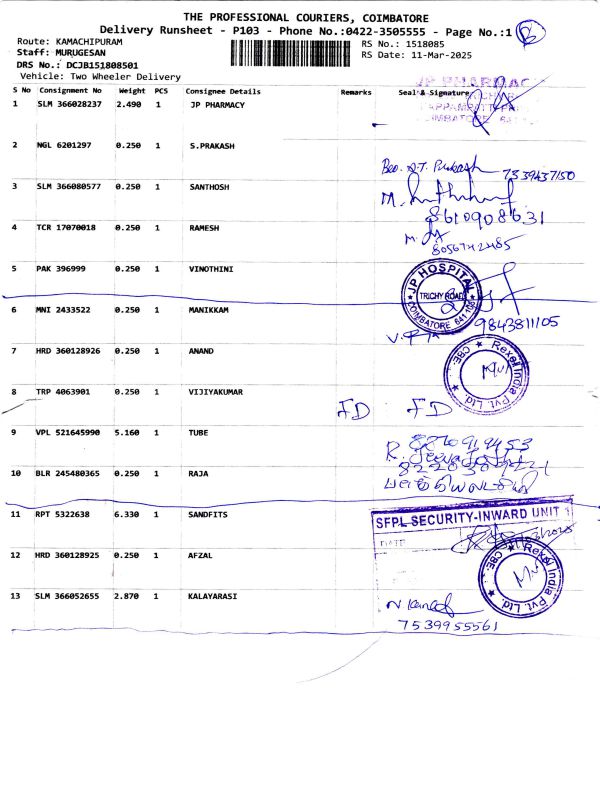 THE PROFESSIONAL COURIERS, COIMBATORE
Delivery Runsheet - P103 - Phone No.:0422-3505555 - Page No.:1
B
Route: KAMACHIPURAM
RS No.: 1518085
Staff: MURUGESAN
RS Date: 11-Mar-2025
DRS No.: DCJB151808501
Vehicle: Two Wheeler Delivery
S No Consignment No Weight PCS Consignee Details Remarks Seal & Signature
JP PHARMAC
1 SLM 366028237 2.490 1 JP PHARMACY
2 NGL 6201297 0.250 1 S.PRAKASH
7539437150
3 SLM 366080577 0.250 1 SANTHOSH
8610908631
4 TCR 17070018 0.250 1 RAMESH
8056742485
5 PAK 396999 0.250 1 VINOTHINI
JP HOSPITAL
TRICHY ROAD
COIMBATORE
6 MNI 2433522 0.250 1 MANIKKAM
9843811105
7 HRD 360128926 0.250 1 ANAND
Rexel India Pvt. Ltd. CBE.
8 TRP 4063901 0.250 1 VIJIYAKUMAR
FD FD
9 VPL 521645990 5.160 1 TUBE
10 BLR 245480365 0.250 1 RAJA
11 RPT 5322638 6.330 1 SANDFITS
SFPL SECURITY-INWARD UNIT 1
DATE
12 HRD 360128925 0.250 1 AFZAL
Rexel India Pvt. Ltd. CBE.
13 SLM 366052655 2.870 1 KALAYARASI
7539955561